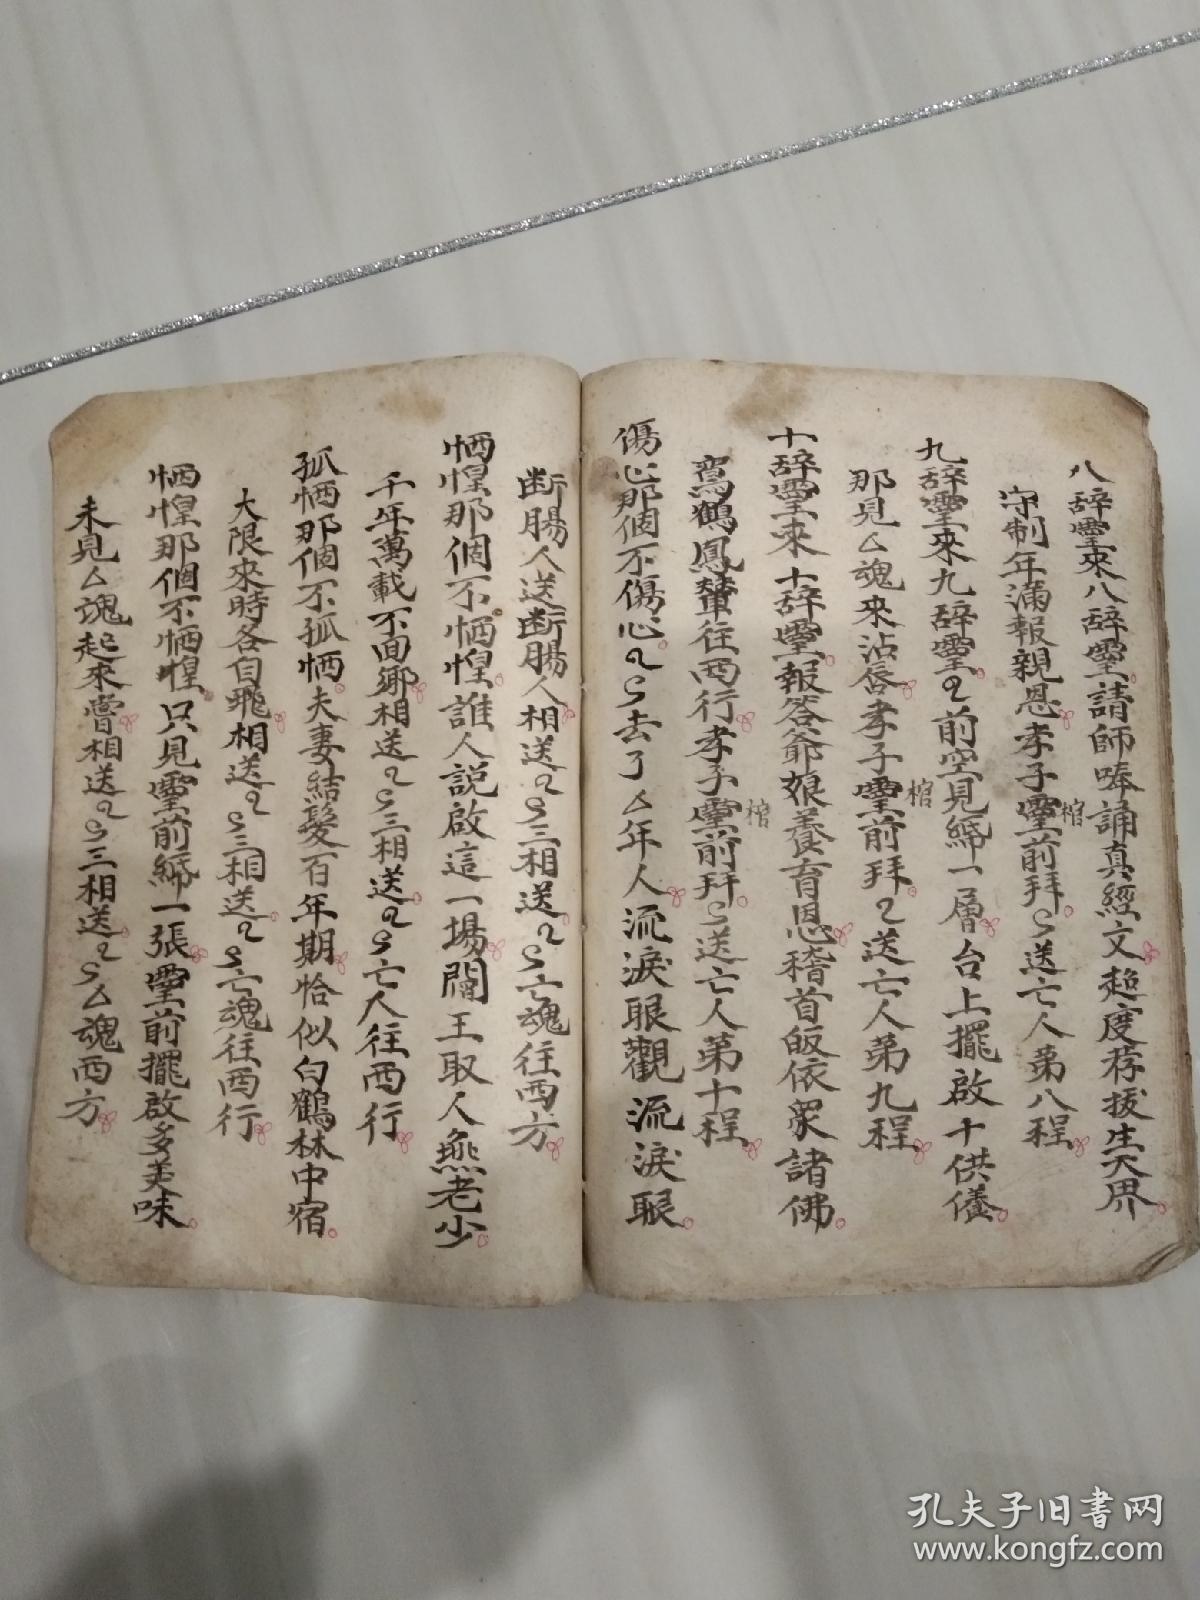 八辞靈來八辞靈請師唪誦真經文超度荐拔生天界
守制年滿報親恩孝子靈前拜〻送亡人第八程
棺
九辞靈來九辞靈〻前空見締一層台上擺啟十供儀
那見亽魂來沾唇孝子靈前拜〻送亡人第九程
棺
十辞靈來十辞靈報答爺娘養育恩稽首皈依衆諸佛
鸞鶴鳳輦往西行孝子靈前拜〻送亡人第十程
棺
傷心那個不傷心〻〻去了亽年人流淚眼觀流淚眼
断腸人送断腸人相送〻〻三相送〻〻亡魂往西方
恓惶那個不恓惶誰人説啟這一場閻王取人無老少
千年萬載不回鄉相送〻〻三相送〻〻亡人往西行
孤恓那個不孤恓夫妻結髮百年期恰似白鶴林中宿
大限來時各自飛相送〻〻三相送〻〻亡魂往西行
恓惶那個不恓惶只見靈前締一張靈前擺啟多美味
未見亽魂起來嘗相送〻〻三相送〻〻亽魂西方
孔夫子旧书网
www.kongfz.com